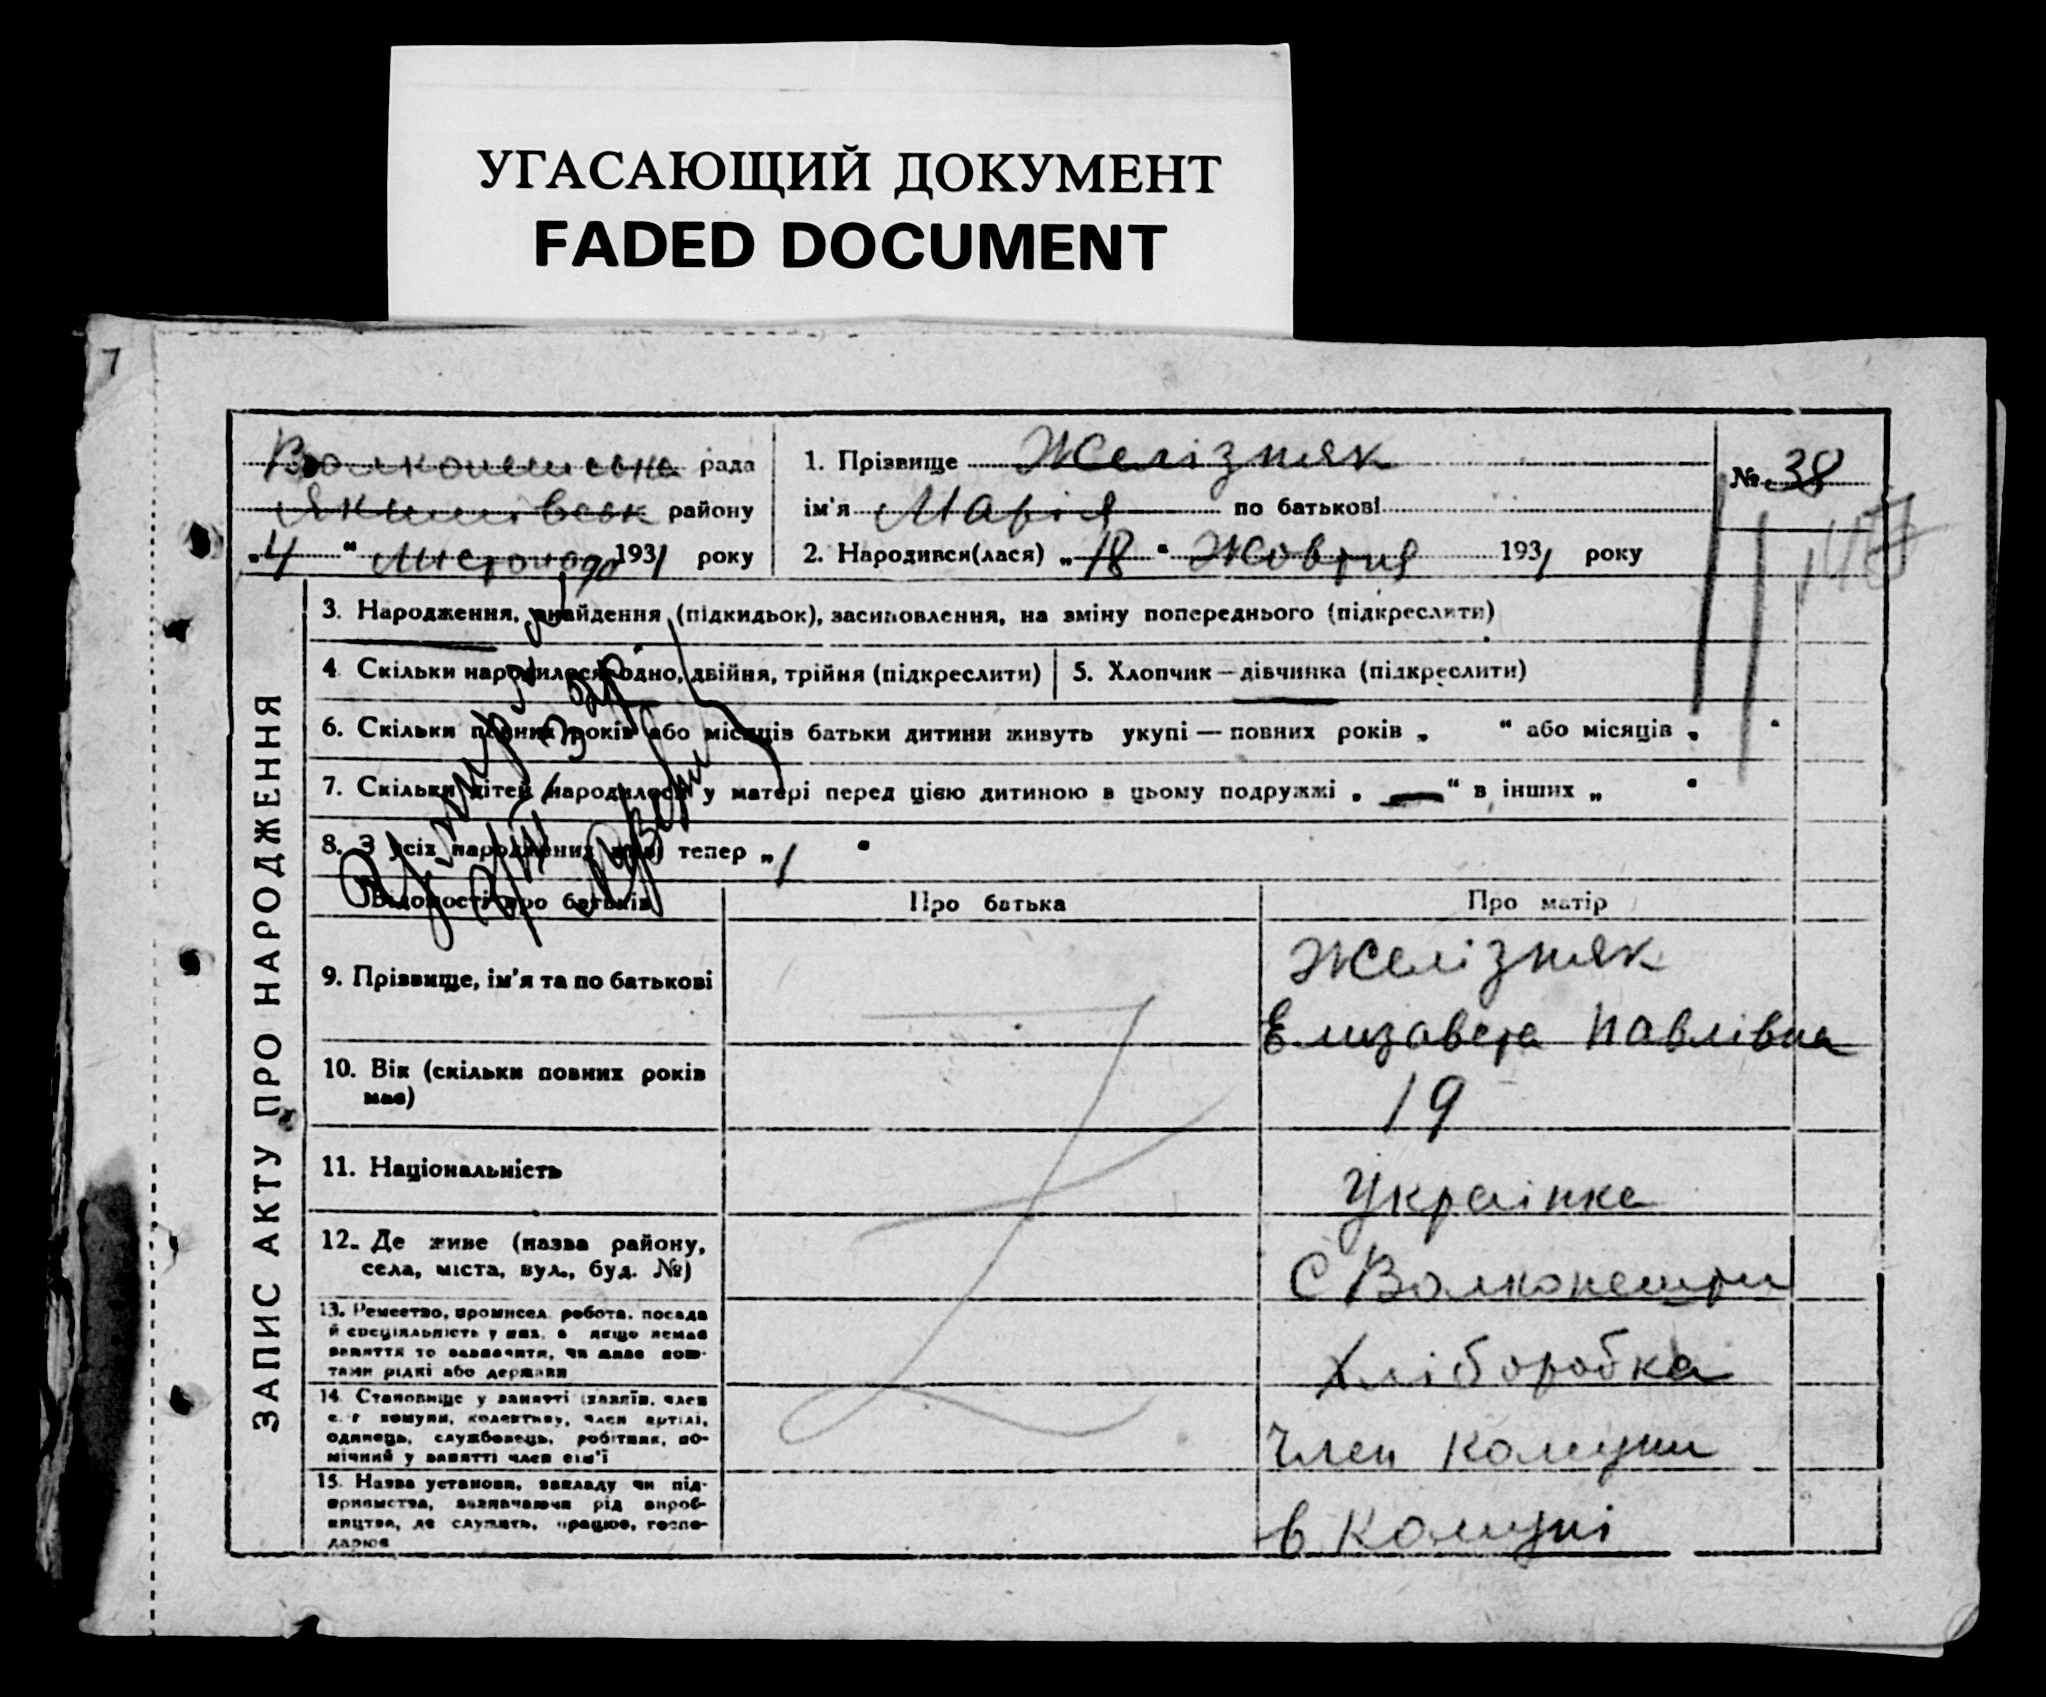 УГАСАЮЩИЙ ДОКУМЕНТ
FADED DOCUMENT
7
рада
Якимівськ району
„4“ Листопада 1931 року
1. Прізвище Желізняк
ім'я Марія по батькові
2. Народився(лася) „18“ Жовтня 1931 року
№ 38
ЗАПИС АКТУ ПРО НАРОДЖЕННЯ
3. Народження, знайдення (підкидьок), засиновлення, на зміну попереднього (підкреслити)
4. Скільки народилося: одно, двійня, трійня (підкреслити)
5. Хлопчик — дівчинка (підкреслити)
6. Скільки повних років або місяців батьки дитини живуть укупі — повних років „ “ або місяців „ “
7. Скільки дітей народилося у матері перед цією дитиною в цьому подружжі „ — “ в інших „ “
8. З усіх народжених живі тепер „1“
Відомості про батьків
Про батька
Про матір
9. Прізвище, ім'я та по батькові
Желізняк
Елизавета Павлівна
10. Вік (скільки повних років має)
19
11. Національність
Українка
12. Де живе (назва району, села, міста, вул., буд. №)
С Волконешти
13. Ремество, промисел, робота, посада й спеціяльність у них, а якщо немає заняття то зазначити, чи живе кош-
тами рідні або держави
Хліборобка
14. Становище у занятті (хазяїн, член с.-г комуни, колективу, член артілі,
одинець, службовець, робітник, по-
мічний у занятті член сім'ї
Член комуни
15. Назва установи, закладу чи під-
приємства, зазначаючи рід вироб-
ництва, де служить, працює, госпо-
дарює
в Комуні